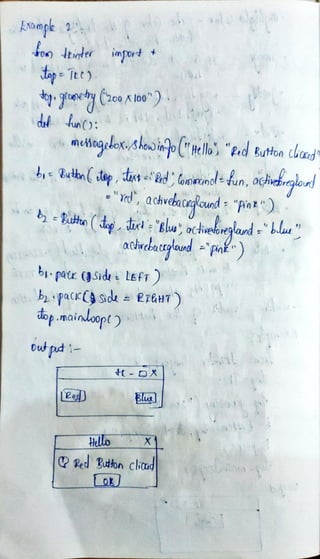 Example 2:-
from tkinter import *
top = Tk()
top.geometry("200x100")
def fun():
messagebox.showinfo("Hello", "Red Button clicked"
b1 = Button(top, text="Red", Command=fun, activeforeground
= "red", activebackground = "pink")
b2 = Button(top, text = "Blue", activeforeground = "blue",
activebackground = "pink")
b1.pack(side = LEFT)
b2.pack(side = RIGHT)
top.mainloop()
output :-
tk - □ X
Red Blue
Hello X
Red Button clicked
OK